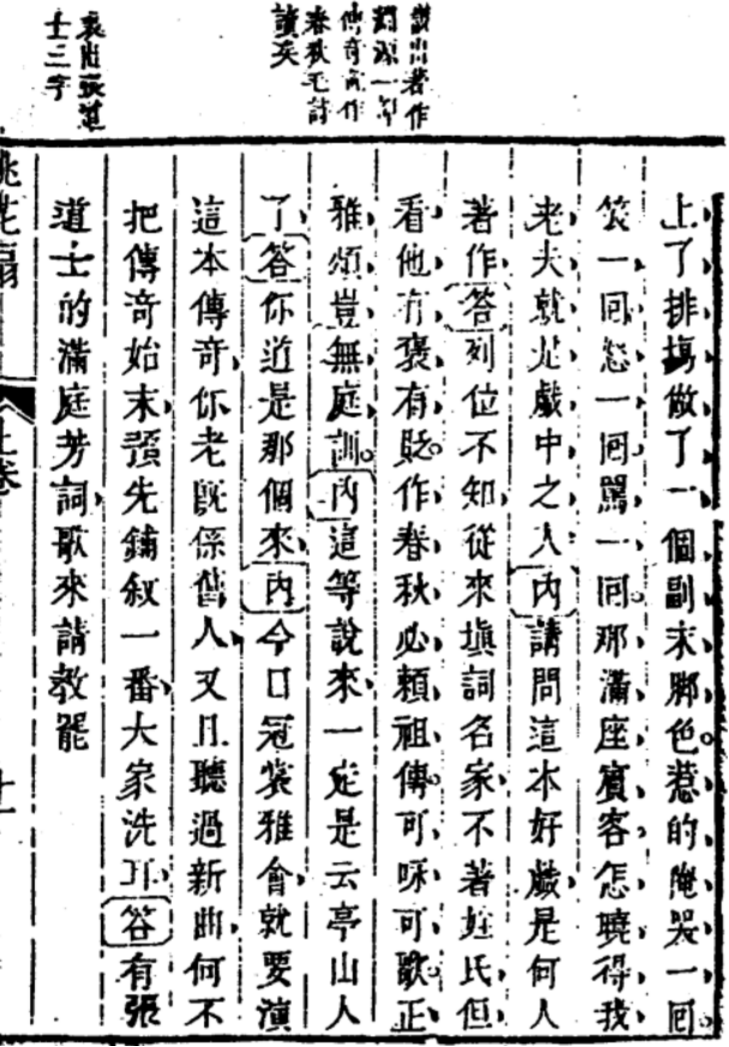 說出著作
淵源一部
傳奇直作
春秋毛詩
讀矣
裝出張道
士三字
上了排場做了一個副末脚色惹的俺哭一回
笑一回怒一回罵一回那滿座賓客怎曉得我
老夫就是戲中之人內請問這本好戲是何人
著作答列位不知從來填詞名家不著姓氏但
看他有褒有貶作春秋必賴祖傳可咏可歌正
雅頌豈無庭訓內這等說來一定是云亭山人
了答你道是那個來內今日冠裳雅會就要演
這本傳奇你老既係舊人又且聽過新曲何不
把傳奇始末預先鋪叙一番大家洗耳答有張
道士的滿庭芳詞歌來請教罷
桃花扇
上卷
十一